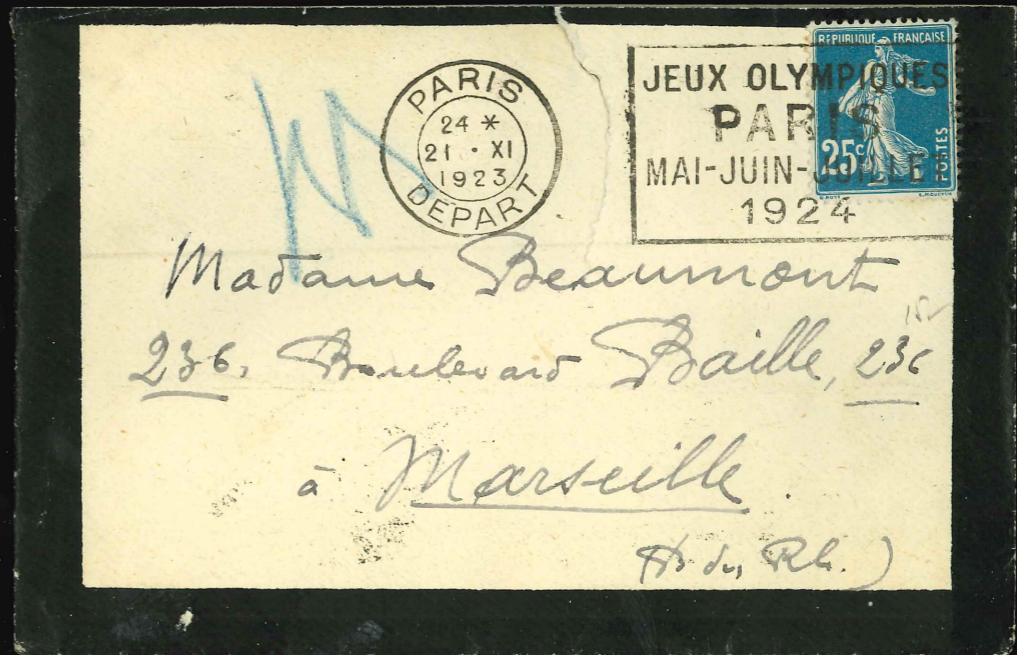 PARIS
24 *
21 • XI
1923
DEPART
JEUX OLYMPIQUES
PARIS
MAI-JUIN-JUILLET
1924
REPUBLIQUE FRANÇAISE
25c
POSTES
Madame Beaumont
236, Boulevard Baille, 236
à Marseille
(B. du Rh.)